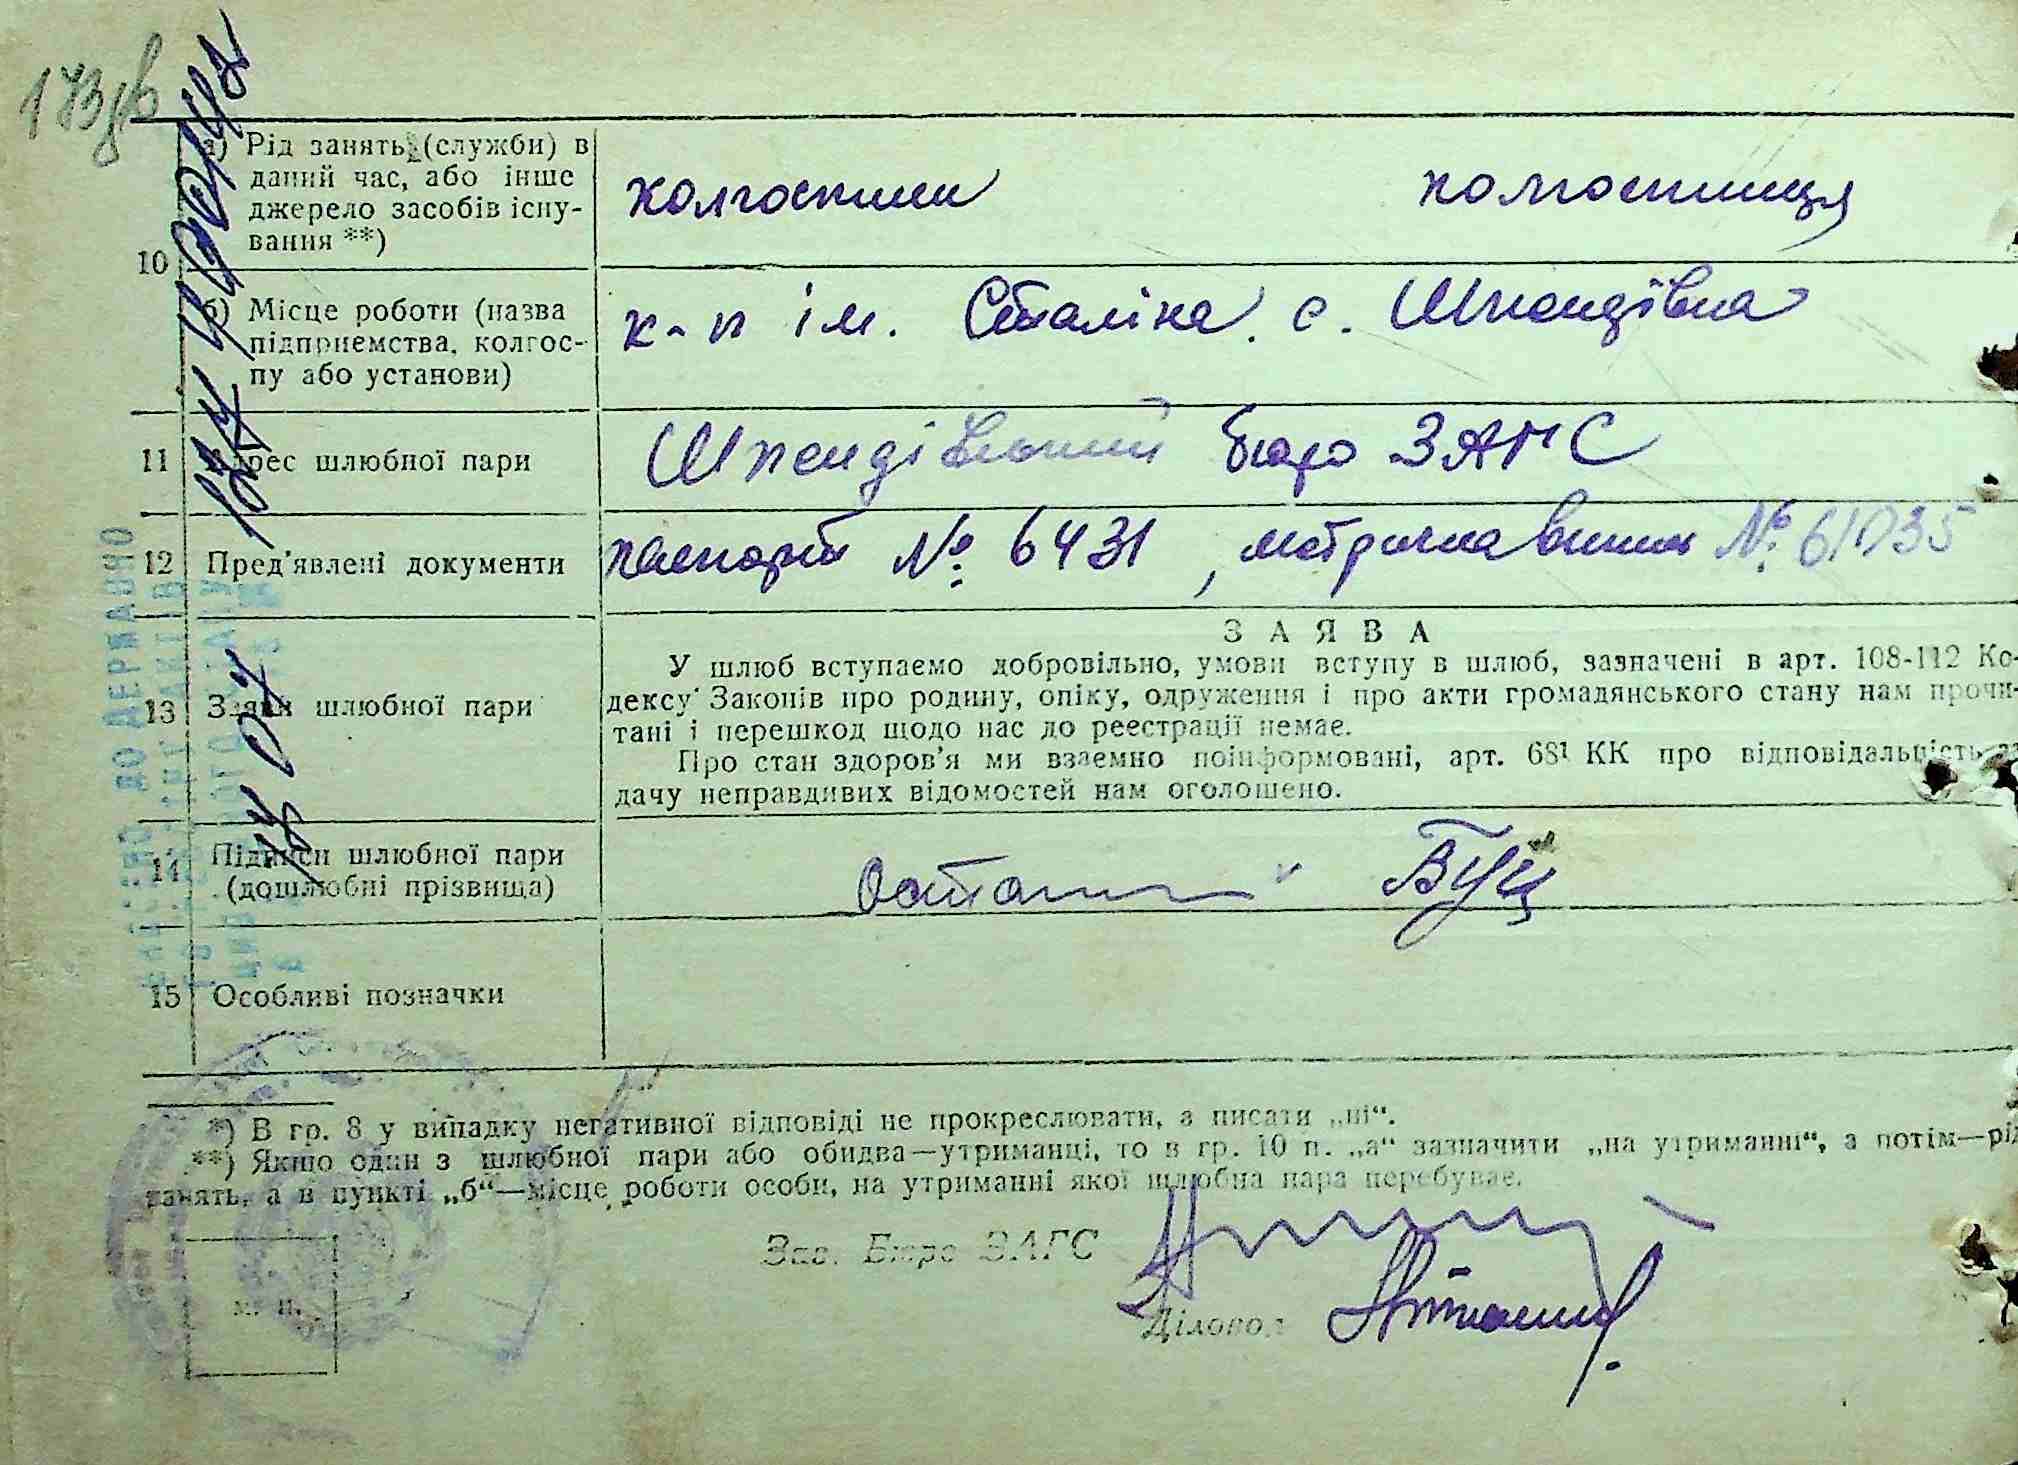 173 зв
а) Рід занять (служби) в
даний час, або інше
джерело засобів існу-
вання **)
колгоспник колгоспниця
10
б) Місце роботи (назва
підприємства, колгос-
пу або установи)
к-п ім. Сталіна с. Шпендівка
11 Адрес шлюбної пари
Шпендівський бюро ЗАГС
12 Пред'явлені документи
паспорт № 6431, метрична виписка № 61035
13 Заяви шлюбної пари
ЗАЯВА
У шлюб вступаємо добровільно, умови вступу в шлюб, зазначені в арт. 108-112 Ко-
дексу Законів про родину, опіку, одруження і про акти громадянського стану нам прочи-
тані і перешкод щодо нас до реєстрації немає.
Про стан здоров'я ми взаємно поінформовані, арт. 68¹ КК про відповідальність за
дачу неправдивих відомостей нам оголошено.
14 Підписи шлюбної пари
(дошлюбні прізвища)
Буц
15 Особливі позначки
*) В гр. 8 у випадку негативної відповіді не прокреслювати, а писати „ні“.
**) Якщо один з шлюбної пари або обидва—утриманці, то в гр. 10 п. „а“ зазначити „на утриманні“, а потім—рід
занять, а в пункті „б“—місце роботи особи, на утриманні якої шлюбна пара перебуває.
Зав. Бюро ЗАГС
Діловод
м. п.